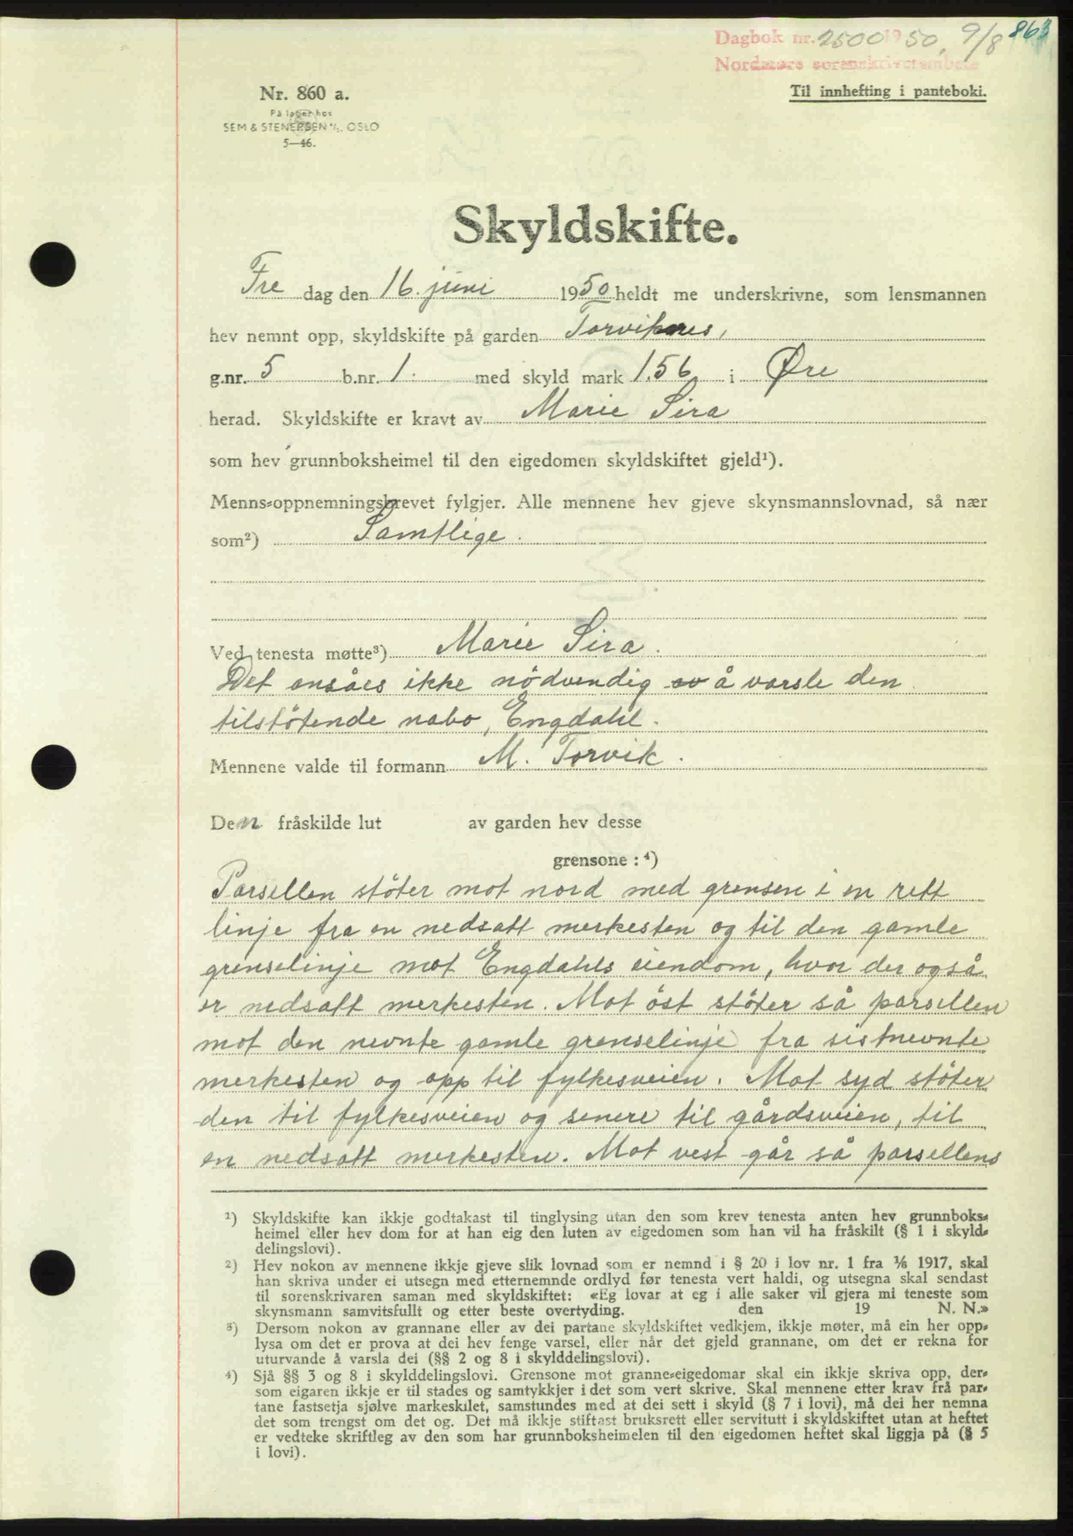 Dagbok nr. 2500 1950, 9/8 863
Nordmøre sorenskrivarembete
Nr. 860 a.
Til innhefting i panteboki.
På lager hos
SEM & STENERSEN A/S, OSLO
5—46.
Skyldskifte.
Fre dag den 16. juni 1950 heldt me underskrivne, som lensmannen
hev nemnt opp, skyldskifte på garden Torviknes,
g.nr. 5 b.nr. 1. med skyld mark 1,56 i Øre
herad. Skyldskifte er kravt av Marie Sira
som hev grunnboksheimel til den eigedomen skyldskiftet gjeld¹).
Menns-oppnemningsbrevet fylgjer. Alle mennene hev gjeve skynsmannslovnad, så nær
som²) Samtlige.
Ved tenesta møtte³) Marie Sira.
Det ansåes ikke nödvendig å varsle den
tilstötende nabo, Engdahl.
Mennene valde til formann M. Torvik.
Den fråskilde lut av garden hev desse
grensone : ⁴)
Parsellen stöter mot nord med grensen i en rett
linje fra en nedsatt merkesten og til den gamle
grenselinje mot Engdahls eiendom, hvor der også
er nedsatt merkesten. Mot öst stöter så parsellen
mot den nevnte gamle grenselinje fra sistnevnte
merkesten og opp til fylkesveien. Mot syd stöter
den til fylkesveien og senere til gårdsveien, til
en nedsatt merkesten. Mot vest går så parsellens
¹) Skyldskifte kan ikkje godtakast til tinglysing utan den som krev tenesta anten hev grunnboks-
heimel eller hev dom for at han eig den luten av eigedomen som han vil ha fråskilt (§ 1 i skyld-
delingslovi).
²) Hev nokon av mennene ikkje gjeve slik lovnad som er nemnd i § 20 i lov nr. 1 fra ⅙ 1917, skal
han skriva under ei utsegn med etternemnde ordlyd før tenesta vert haldi, og utsegna skal sendast
til sorenskrivaren saman med skyldskiftet: «Eg lovar at eg i alle saker vil gjera mi teneste som
skynsmann samvitsfullt og etter beste overtyding. den 19 N. N.»
³) Dersom nokon av grannane eller av dei partane skyldskiftet vedkjem, ikkje møter, må ein her opp-
lysa om det er prova at dei hev fenge varsel, eller når det gjeld grannane, om det er rekna for
uturvande å varsla dei (§§ 2 og 8 i skylddelingslovi).
⁴) Sjå §§ 3 og 8 i skylddelingslovi. Grensone mot granne-eigedomar skal ein ikkje skriva opp, der-
som eigaren ikkje er til stades og samtykkjer i det som vert skrive. Skal mennene etter krav frå par-
tane fastsetja sjølve markeskilet, samstundes med at dei sett i skyld (§ 7 i lovi), må dei her nemna
det som trengst om det og. Det må ikkje stiftast bruksrett eller servitutt i skyldskiftet utan at heftet
er vedteke skriftleg av den som har grunnboksheimelen til den eigedomen heftet skal liggja på (§ 5
i lovi).